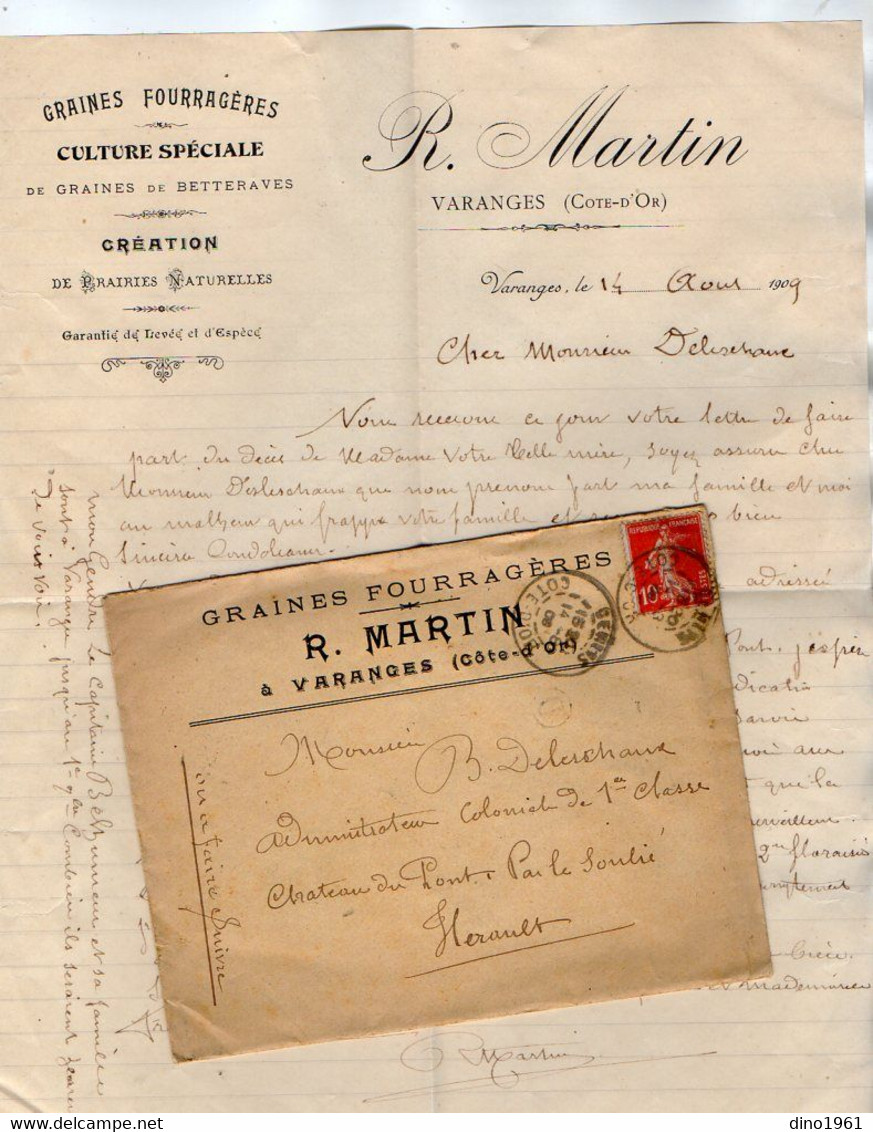 GRAINES FOURRAGÈRES
CULTURE SPÉCIALE
DE GRAINES DE BETTERAVES
CRÉATION
DE PRAIRIES NATURELLES
Garantie de Levée et d'Espèce
R. Martin
VARANGES (COTE-D'OR)
Varanges, le 14 Aout 1909
Cher Monsieur Deleschaux
Nous recevons ce jour votre lettre de faire
part du décès de Madame Votre belle mère, soyez assuré Cher
Monsieur Desleschaux que nous prenons part ma famille et moi
au malheur qui frappe votre famille et bien
Sincère Condoléances.
adressée
Pont, j'espère
que la
merveilleux
2me floraison
Martin
mon Gendre le Capitaine et sa famille
sont à Varanges jusqu'au 1er 7bre Combien ils seraient heureux
de vous voir.
REPUBLIQUE FRANÇAISE
POSTES
10
GENLIS
COTE-D'OR
GRAINES FOURRAGÈRES
R. MARTIN
à VARANGES (Côte-d'Or)
Monsieur
B. Deleschaux
Administrateur Colonial de 1re Classe
Chateau du Pont Par le Soulié
Herault
ou a faire Suivre
dino1961